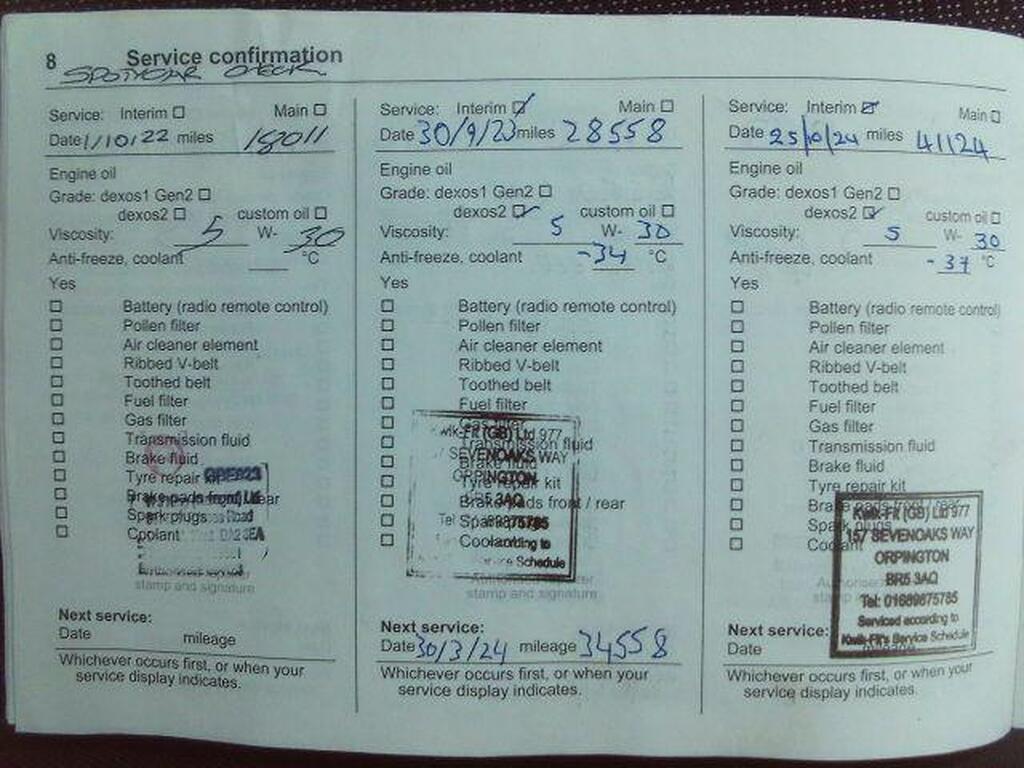 8 Service confirmation
SPOTICAR CHECK
Service: Interim ☐ Main ☐
Date 1/10/22 miles 18011
Engine oil
Grade: dexos1 Gen2 ☐
dexos2 ☐ custom oil ☐
Viscosity: 5 W- 30
Anti-freeze, coolant °C
Yes
☐ Battery (radio remote control)
☐ Pollen filter
☐ Air cleaner element
☐ Ribbed V-belt
☐ Toothed belt
☐ Fuel filter
☐ Gas filter
☐ Transmission fluid
☐ Brake fluid
☐ Tyre repair
☐ Brake pads front / rear
☐ Spark plugs
☐ Coolant
stamp and signature
Next service:
Date mileage
Whichever occurs first, or when your
service display indicates.
Service: Interim ☑ Main ☐
Date 30/9/23 miles 28558
Engine oil
Grade: dexos1 Gen2 ☐
dexos2 ☑ custom oil ☐
Viscosity: 5 W- 30
Anti-freeze, coolant -34 °C
Yes
☐ Battery (radio remote control)
☐ Pollen filter
☐ Air cleaner element
☐ Ribbed V-belt
☐ Toothed belt
☐ Fuel filter
☐ Gas filter
☐ Transmission fluid
☐ Brake fluid
☐ Tyre repair kit
☐ Brake pads front / rear
☐ Spark
☐ Coolant
Kwik-Fit (GB) Ltd 977
SEVENOAKS WAY
ORPINGTON
BR5 3AQ
according to
Service Schedule
stamp and signature
Next service:
Date 30/3/24 mileage 34558
Whichever occurs first, or when your
service display indicates.
Service: Interim ☑ Main ☐
Date 25/10/24 miles 41124
Engine oil
Grade: dexos1 Gen2 ☐
dexos2 ☑ custom oil ☐
Viscosity: 5 W- 30
Anti-freeze, coolant -37 °C
Yes
☐ Battery (radio remote control)
☐ Pollen filter
☐ Air cleaner element
☐ Ribbed V-belt
☐ Toothed belt
☐ Fuel filter
☐ Gas filter
☐ Transmission fluid
☐ Brake fluid
☐ Tyre repair kit
☐ Brake pads front / rear
☐ Spark plugs
☐ Coolant
Kwik-Fit (GB) Ltd 977
157 SEVENOAKS WAY
ORPINGTON
BR5 3AQ
Tel: 01689875785
Serviced according to
Kwik-Fit's Service Schedule
Next service:
Date
Whichever occurs first, or when your
service display indicates.